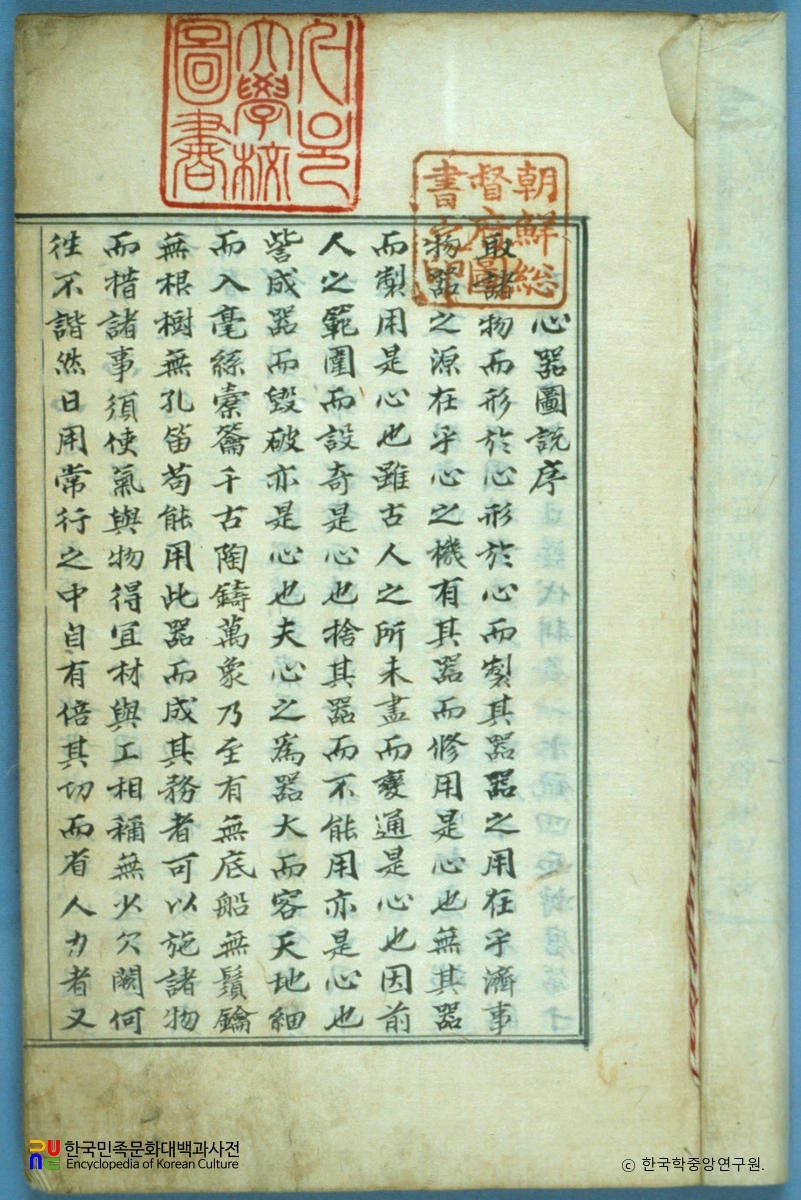 서울
大學校
圖書
朝鮮総
督府圖
書之印
心器圖説序
取諸物而形於心形於心而製其器器之用在乎濟事
物器之源在乎心之機有其器而修用是心也無其器
而製用是心也雖古人之所未盡而變通是心也因前
人之範圍而設奇是心也捨其器而不能用亦是心也
訾成器而毁破亦是心也夫心之爲器大而容天地細
而入毫絲橐籥千古陶鑄萬象乃至有無底船無鬚鑰
無根樹無孔笛苟能用此器而成其務者可以施諸物
而措諸事須使氣與物得宜材與工相稱無少欠闕何
徃不諧然日用常行之中自有倍其切而省人力者又
한국민족문화대백과사전
Encyclopedia of Korean Culture
ⓒ 한국학중앙연구원.